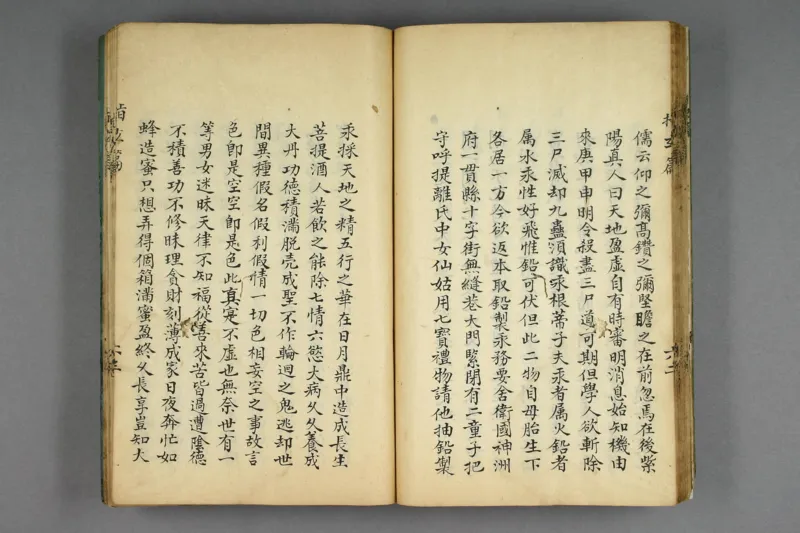 儒云仰之彌高鑽之彌堅瞻之在前忽焉在後紫
陽真人曰天地盈虛自有時審明消息始知機由
來庚甲申明令殺盡三尸道可期但學人欲斬除
三尸滅却九蠱須識汞根蒂子夫汞者属火鉛者
属水汞性好飛惟鉛可伏但此二物自母胎生下
各居一方今欲返本取鉛製汞務要舍衛國神洲
府一貫縣十字街無縫巷大門緊閉有二童子把
守呼提離氏中女仙姑用七寶禮物請他抽鉛製
汞採天地之精五行之華在日月鼎中造成長生
菩提酒人若飲之能除七情六慾大病久久養成
大丹功德積滿脱壳成聖不作輪廻之鬼逃却世
間異種假名假利假情一切色相妄空之事故言
色卽是空空卽是色此真寔不虛也無奈世有一
等男女迷昧天律不知福從善來苦皆過遭陰德
不積善功不修昧理貪財刻薄成家日夜奔忙如
蜂造蜜只想弄得個箱滿蜜盈終久長享豈知大